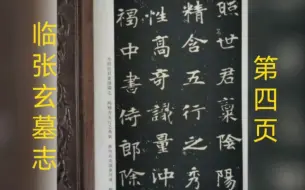 临张玄墓志
第四页
照世君稟陰陽
精含五行之秀
性高奇識量沖
褐中書侍郎除